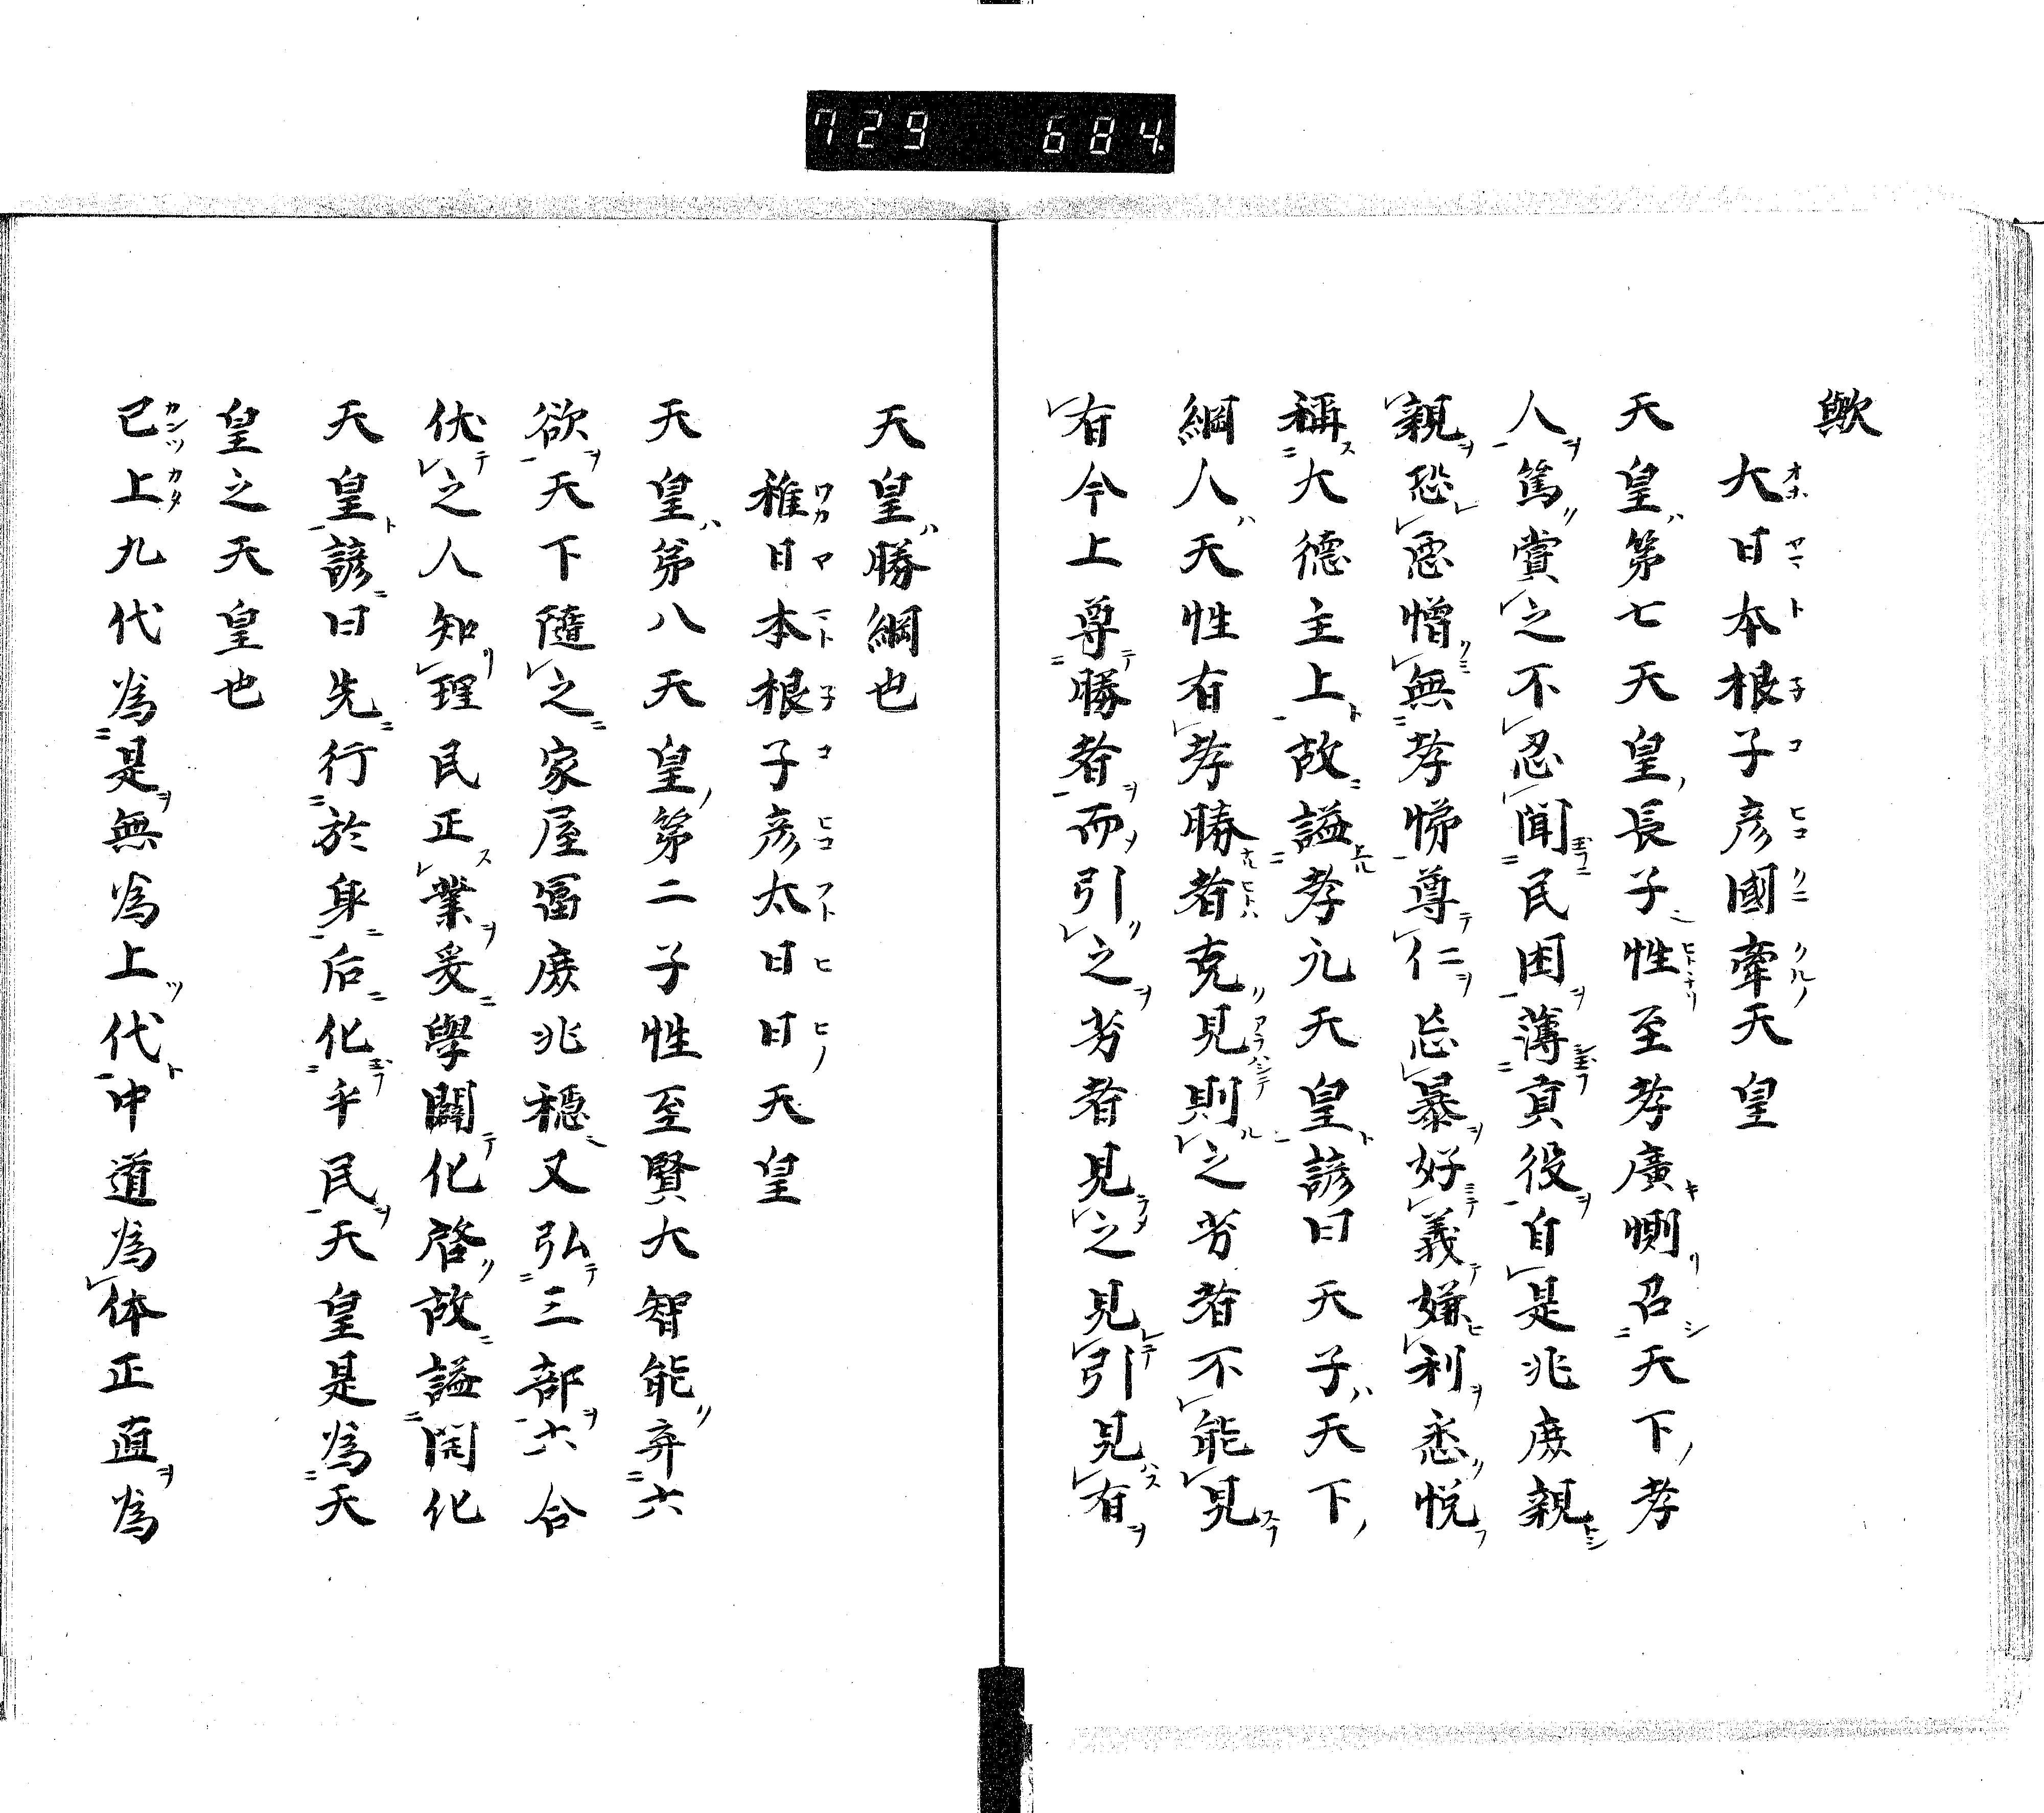 729 684
歟
大日本根子彦國牽天皇
天皇第七天皇長子性至孝廣惻召天下孝
人篤賞之不忍聞民困薄貢役自是兆庶親
親恐悪憎無孝悌尊仁忘暴好義嫌利悉悦
稱大德主上故諡孝元天皇諺曰天子天下
綱人天性有孝勝者克見則之劣者不能見
有今上尊勝者而引之劣者見之見引見有
天皇勝綱也
稚日本根子彦太日日天皇
天皇第八天皇第二子性至賢大智能弃六
欲天下隨之家屋冨庶兆穏又弘三部六合
伏之人知理民正業爰學闢化啓故諡開化
天皇諺曰先行於身后化乎民天皇是為天
皇之天皇也
已上九代為是無為上代中道為体正直為